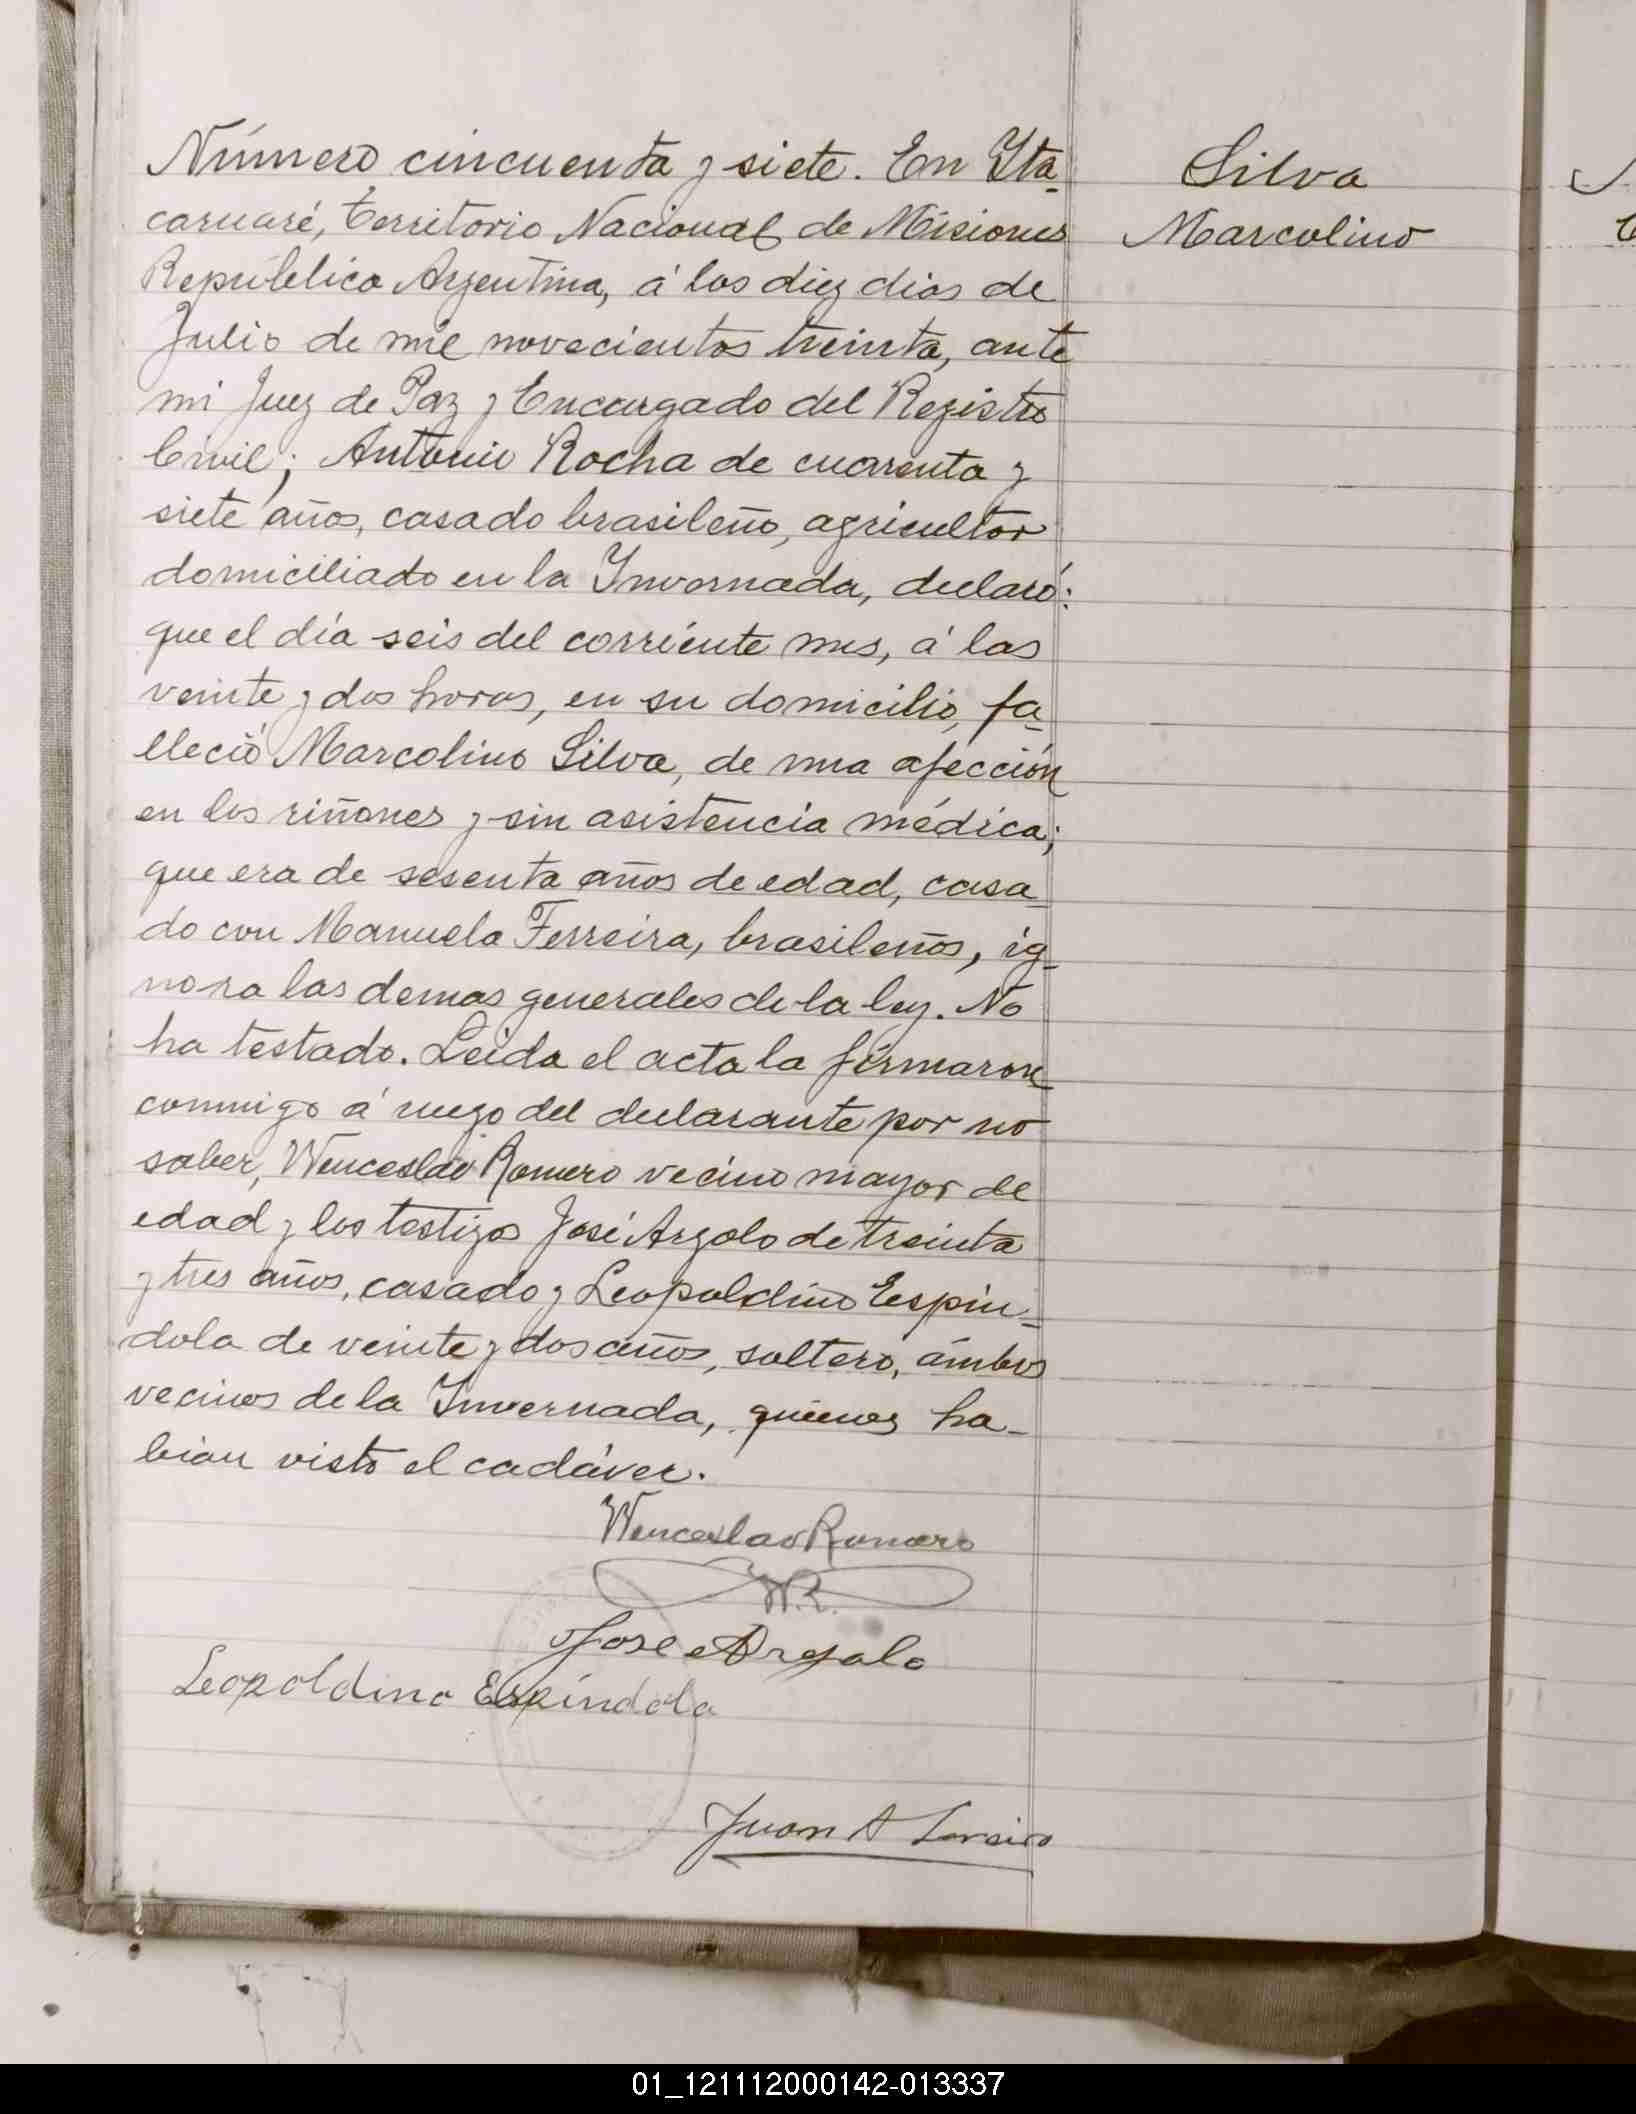 Número cincuenta y siete. En Ita-
caruaré, territorio Nacional de Misiones
República Argentina, á los diez dias de
Julio de mil novecientos treinta, ante
mi Juez de Paz y Encargado del Registro
Civil; Antonio Rocha de cuarenta y
siete años, casado brasileño, agricultor
domiciliado en la Invernada, declaró:
que el día seis del corriente mes, á las
veinte y dos horas, en su domicilio, fa-
lleció Marcolino Silva, de una afección
en los riñones y sin asistencia médica;
que era de sesenta años de edad, casa-
do con Manuela Ferreira, brasileños, ig-
nora las demas generales de la ley. No
ha testado. Leida el acta la firmaron
conmigo á ruego del declarante por no
saber, Wenceslao Romero vecino mayor de
edad y los testigos José Argolo de treinta
y tres años, casado y Leopoldino Espin-
dola de veinte y dos años, soltero, ámbos
vecinos de la Invernada, quienes ha-
bian visto el cadáver.
Wenceslao Romero
W.R.
Jose Argolo
Leopoldino Espíndola
Juan A
Silva
Marcolino
01_121112000142-013337